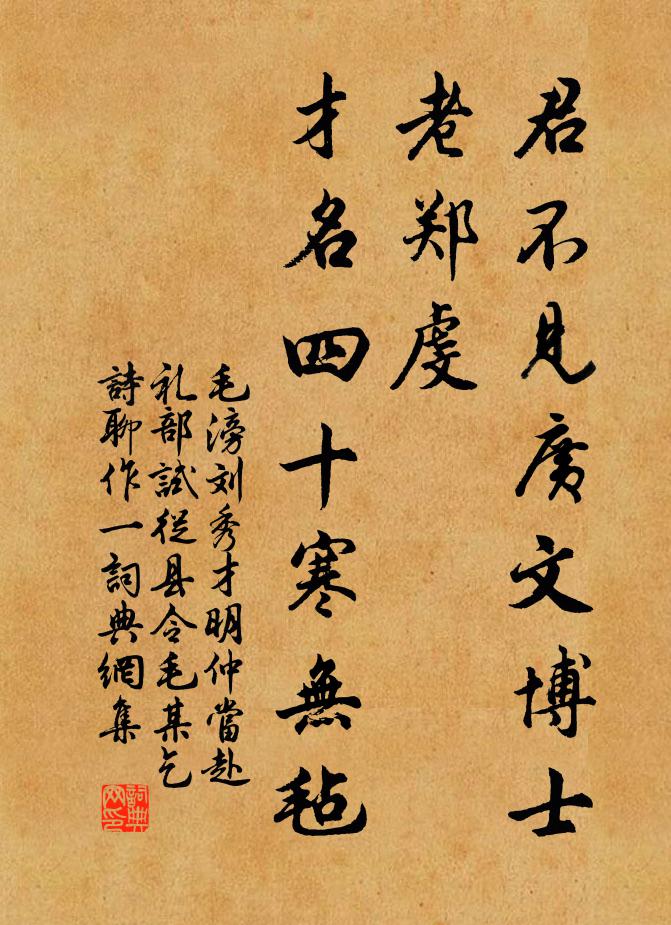 君不见廣文博士
老郑虔
才名四十寒無毡
毛滂刘秀才明仲當赴
礼部試從县令毛某乞
詩聊作一詞典網集
詞典网印